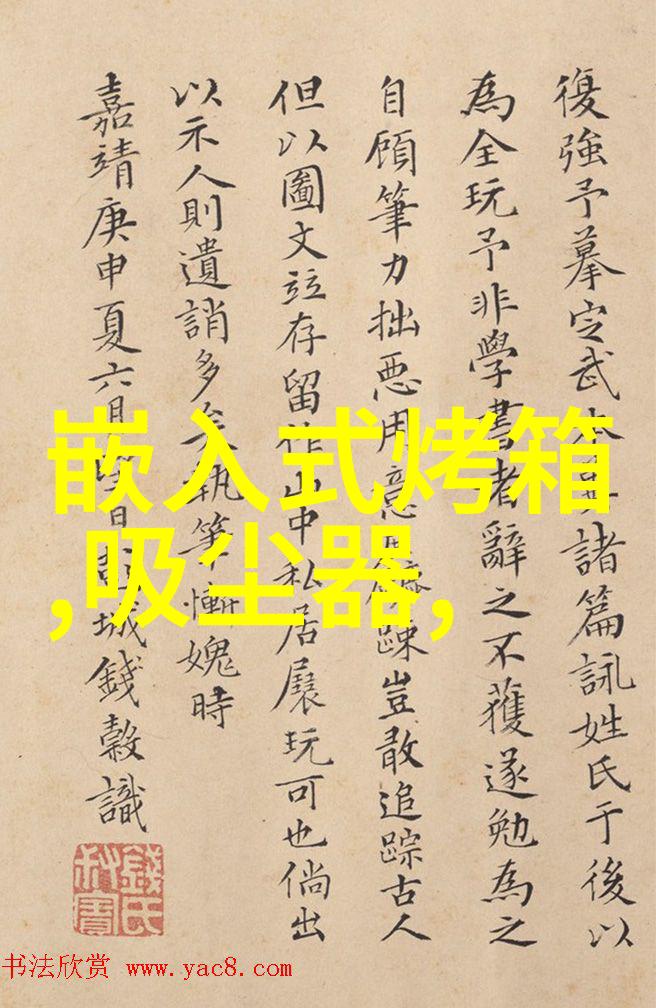 復強予摹定武本并諸篇詠姓氏于後以
為全玩予非學書者辭之不獲遂勉為之
自顧筆力拙惡用意踈豈敢追踪古人
但以圖文竝存留作山中私居展玩可也倘出
以示人則遺誚多矣執筆慚媿時
嘉靖庚申夏六月日彭城錢穀識
錢氏
嵌入式烤箱
,吸尘器,
书法欣赏 www.yac8.com